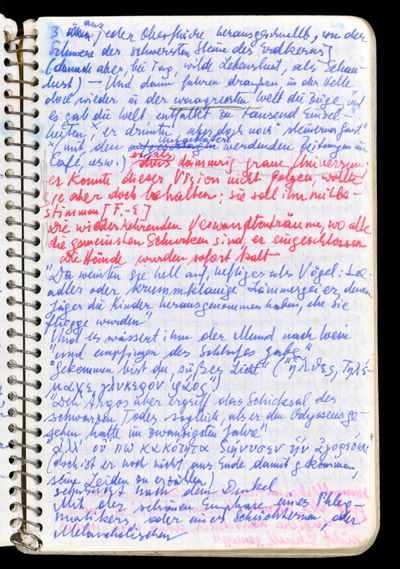 3 aus jeder Oberfläche herausgeschnellt, von der
Schwere der schwersten Steine des Erdkerns]
(danach aber, bei Tag, wilde Lebenslust, als Schau-
lust) – Und dann fuhren draußen, in der Helle
doch wieder in der Welt die Züge, und
es gab die Welt, entfaltet in tausend Einzel-
heiten, er drunten, aber doch noch steinerner Gast
mit den werdenden Zeitungen im
Café, usw.) dämmrig-graue Universum;
er konnte dieser Vision nicht folgen, wollte
sie aber doch behalten; sie soll ihn mitbe-
stimmen [F.-E]
Die wiederkehrenden Verwandtenträume, wo alle
die gemeinsten Schurken sind, er eingeschlossen
Die Hände wurden sofort kalt
"Da weinten sie hell auf, heftiger als Vögel: See-
adler oder krummklauige Lämmergeier, denen
Jäger die Kinder herausgenommen haben, ehe sie
flügge wurden"
Und es wässert ihm der Mund nach Wein
"und empfingen des Schlafes Gabe"
"Gekommen bist du, süßes Licht" ("ἦλθες, Τηλέ-
μαχε, γλυκερὸν φάος")
"Den Argos aber ergriff das Schicksal des
schwarzen Todes sogleich, als er den Odysseus ge-
sehen hatte im zwanzigsten Jahre"
"ἀλλ' οὔ πω κακότητα διήνυσεν ἣν ἀγορεύων"
(doch ist er noch nicht ans Ende damit gekommen,
seine Leiden zu erzählen)
nach dem Dunkel
Mit der schönen Emphase eines Phleg-
matikers, oder eines Schüchternen, oder
Melancholischen